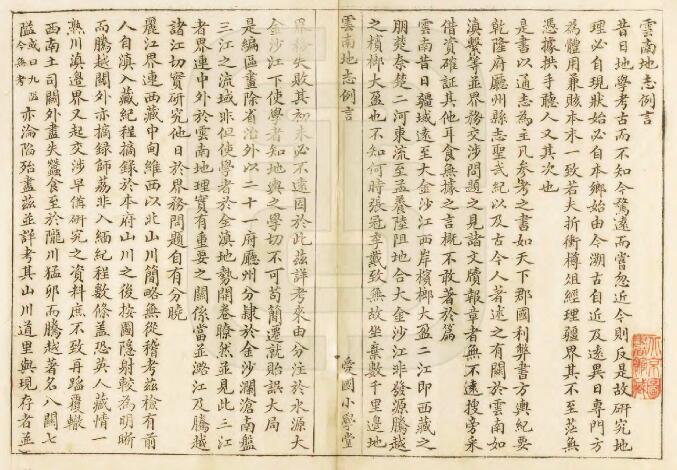 雲南地志例言
昔日地學考古而不知今驚遠而嘗忽近今則反是故研究地
理必自現狀始必自本鄉始由今溯古自近及遠異日專門方
為體用兼賅本末一致若夫折衝樽俎經理疆界其不至茫無
憑據拱手聽人又其次也
是書以通志為主凡參考之書如天下郡國利弊書方輿紀要
乾隆府廳州縣志聖武紀以及古今人著述之有關於雲南如
滇繫等並界務交涉問題之見諸文牘報章者無不速搜旁采
借資確証其他耳食無據之言概不敢著於篇
雲南昔日疆域遠至大金沙江西岸檳榔大盈二江即西藏之
朋楚奈楚二河東流至孟養陸阻地合大金沙江非發源騰越
之檳榔大盈也不知何時張冠李戴致無故坐棄數千里邊地
雲南地志例言
愛國小學堂
界務失敗其初未必不遠因於此茲詳考來由分注於水源大
金沙江下使學者知地輿之學切不可苟簡遷就貽誤大局
是編區畫除省治外以二十一府廳州分隸於金沙瀾滄南盤
三江之流域非但使學者於全滇地勢開卷瞭然並見此三江
者界連中外於雲南地理實有重要之關係當並潞江及騰越
諸江切實研究他日於界務問題自有分曉
麗江界連西藏中甸維西以北山川簡略無從稽考茲檢有前
人自滇入藏紀程摘錄於本府山川之後按圖隱射較為明晰
而騰越關外亦摘錄師荔非入緬紀程數條蓋恐英人藏情一
熟川滇邊界又起交涉早備研究之資料庶不致再蹈覆轍
西南土司關外盡失蠶食至於隴川猛卯而騰越著名八關七
隘或曰九隘今無考亦淪陷殆盡茲並詳考其山川道里與現存者並